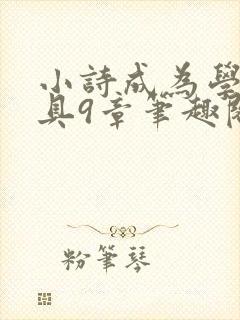 小詩成為學
具9章筆趣閣
粉筆琴